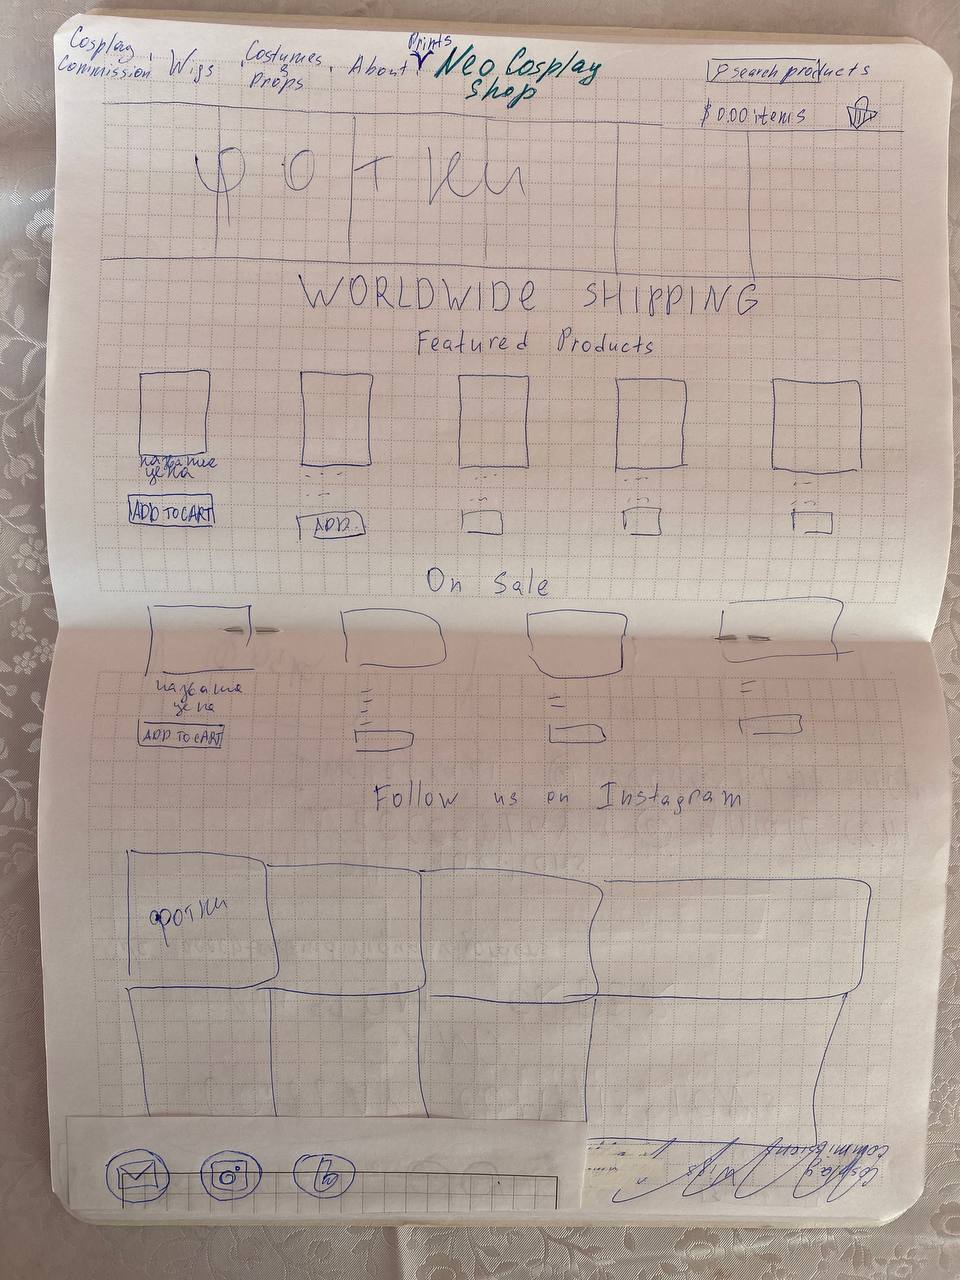 Cosplay Commission
Wigs
Costumes & Props
About
Prints
Neo Cosplay Shop
search products
$ 0.00 items
фотки
WORLDWIDE SHIPPING
Featured Products
название
цена
ADD TO CART
ADD
On Sale
название
цена
ADD TO CART
Follow us on Instagram
фотки
Cosplay commission
Wigs